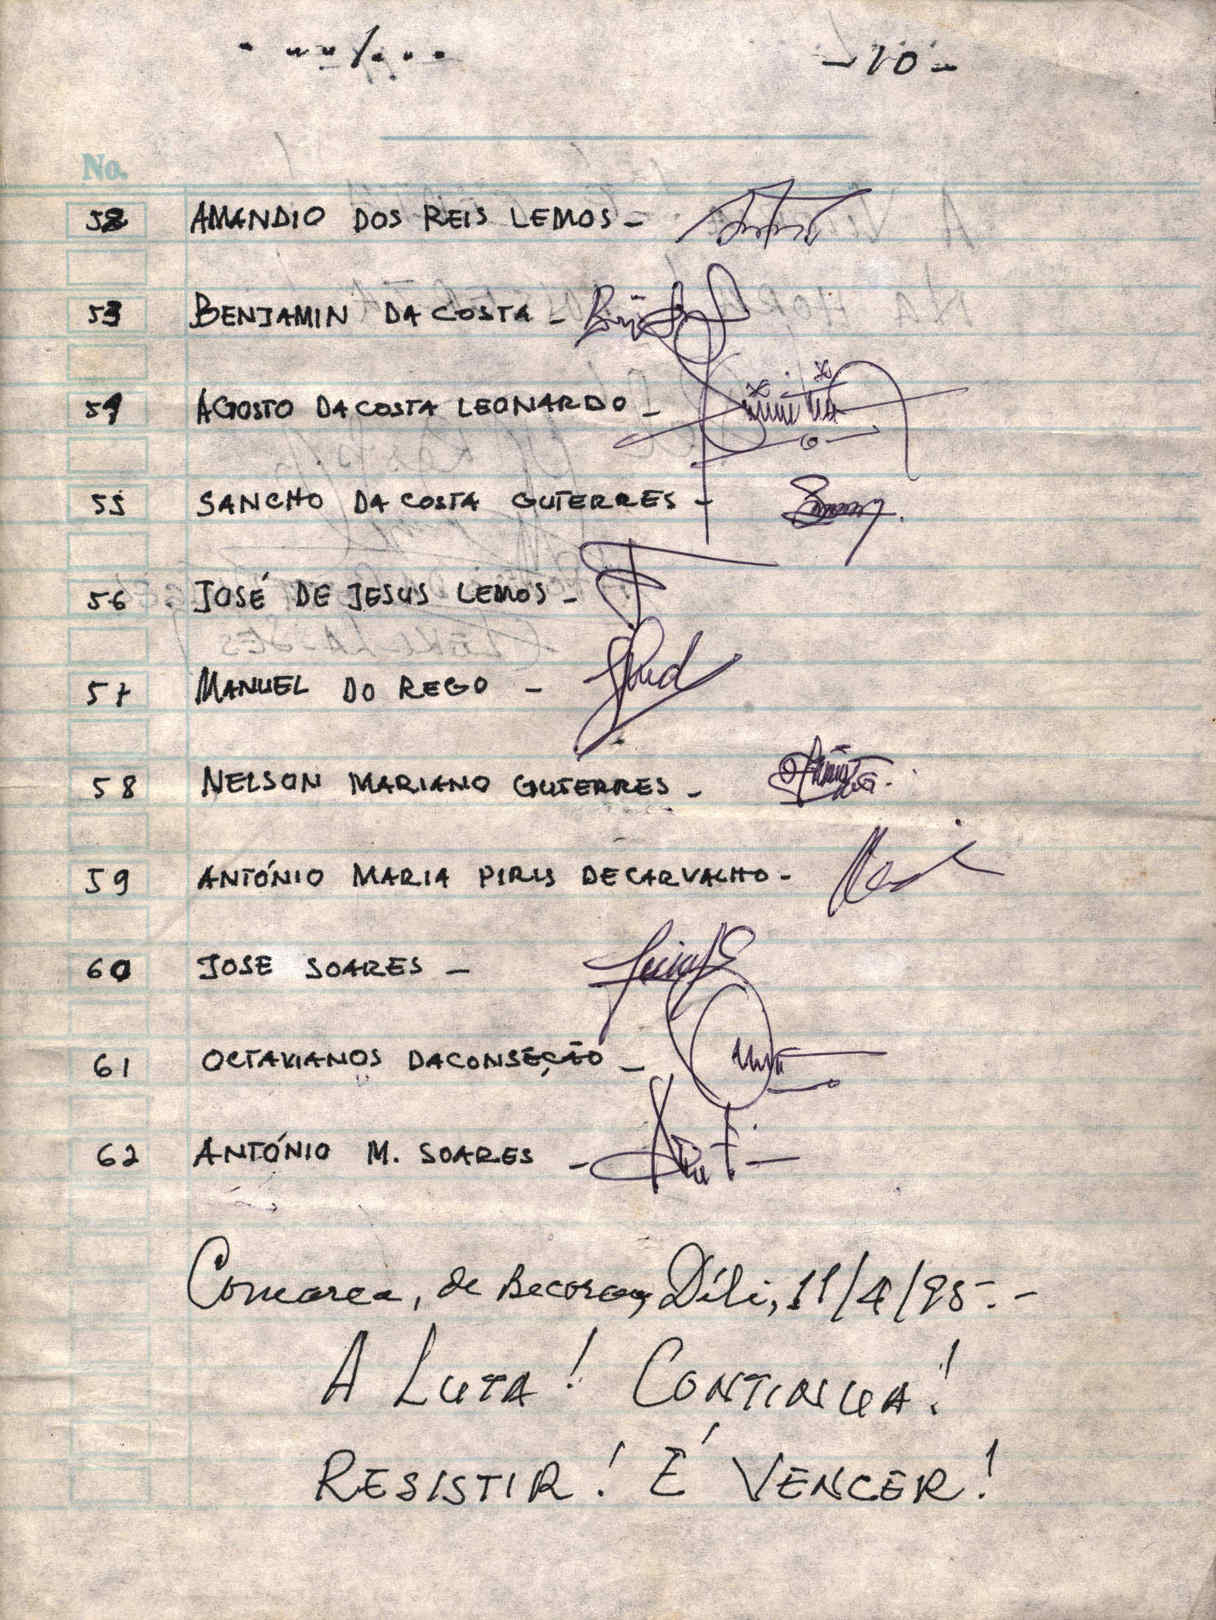 - 10 -
No.
52 AMANDIO DOS REIS LEMOS -
53 BENJAMIN DA COSTA -
54 AGOSTO DA COSTA LEONARDO -
55 SANCHO DA COSTA GUTERRES -
56 JOSÉ DE JESUS LEMOS -
57 MANUEL DO REGO -
58 NELSON MARIANO GUTERRES -
59 ANTÓNIO MARIA PIRIS DE CARVALHO -
60 JOSE SOARES -
61 OCTAVIANOS DA CONSEÇÃO -
62 ANTÓNIO M. SOARES -
Comarca, de Becora, Díli, 11/4/95.-
A LUTA! CONTINUA!
RESISTIR! É VENCER!